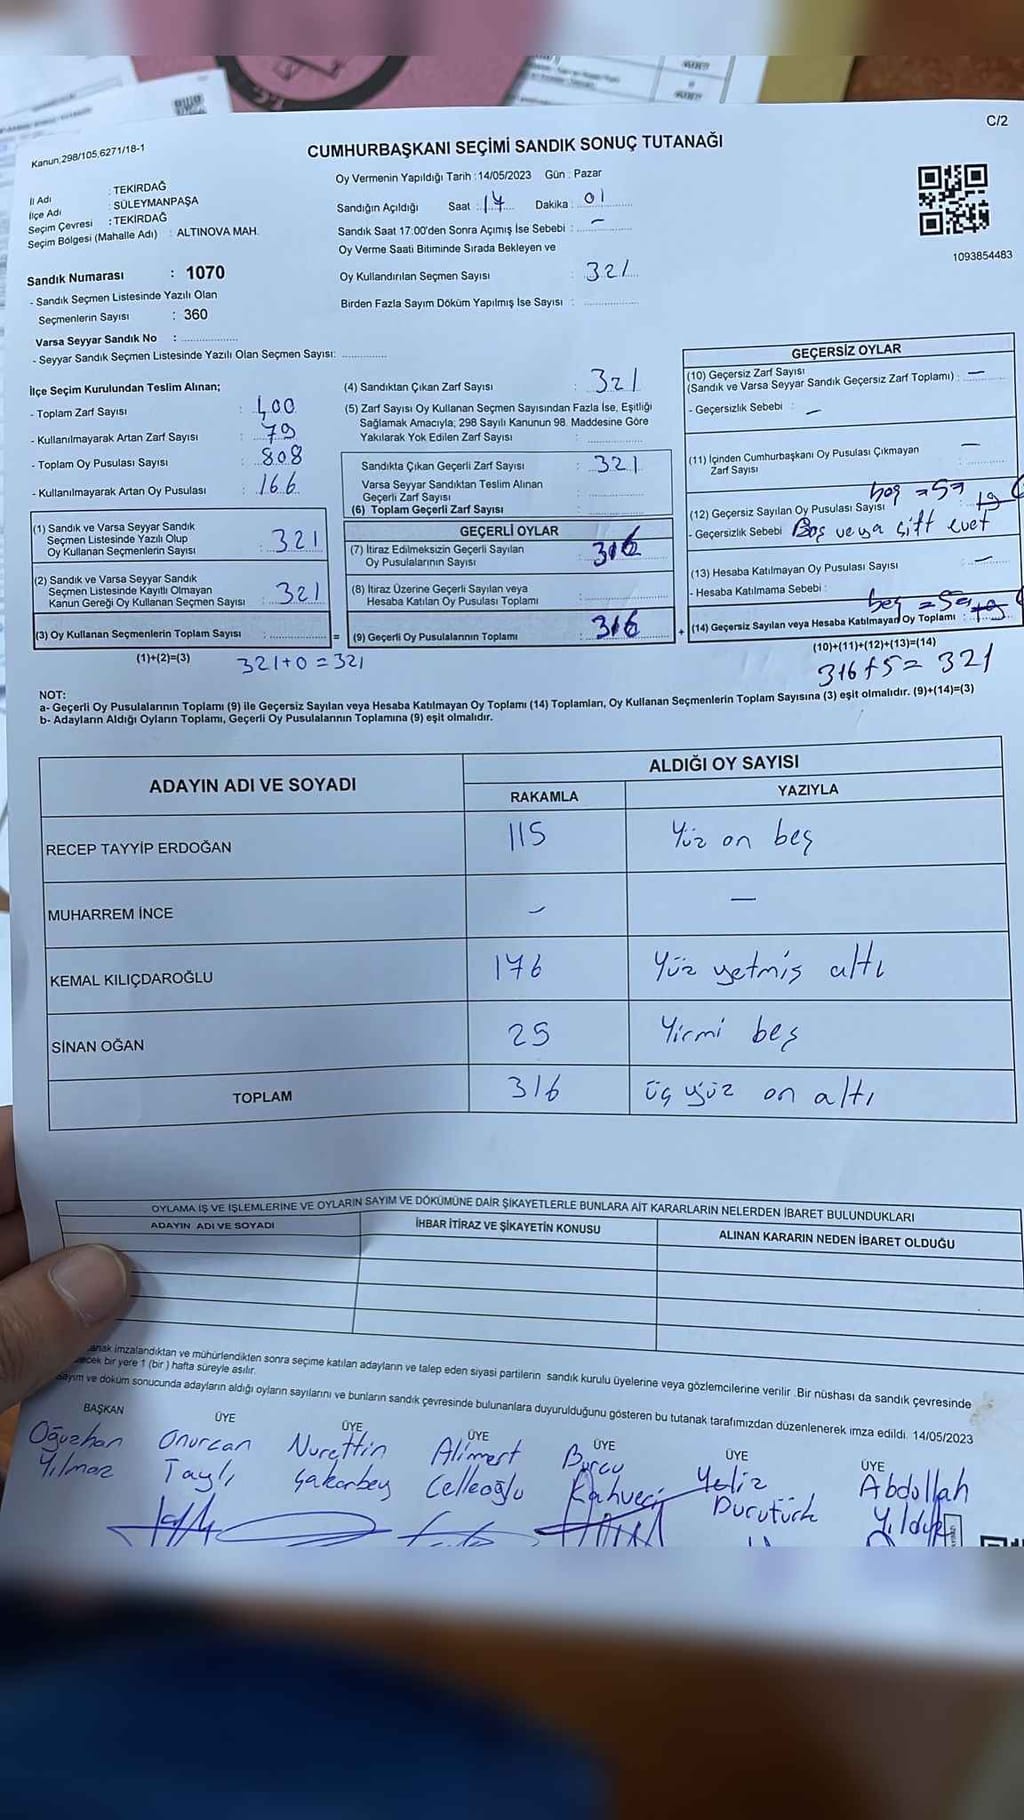 C/2
Kanun,298/105,6271/18-1
CUMHURBAŞKANI SEÇİMİ SANDIK SONUÇ TUTANAĞI
İl Adı : TEKİRDAĞ
İlçe Adı : SÜLEYMANPAŞA
Seçim Çevresi : TEKİRDAĞ
Seçim Bölgesi (Mahalle Adı) : ALTINOVA MAH.
Oy Vermenin Yapıldığı Tarih : 14/05/2023 Gün : Pazar
Sandığın Açıldığı Saat : 17 Dakika : 01
Sandık Saat 17:00'den Sonra Açımış İse Sebebi : –
Oy Verme Saati Bitiminde Sırada Bekleyen ve
Oy Kullandırılan Seçmen Sayısı : 321
Birden Fazla Sayım Döküm Yapılmış İse Sayısı :
1093854483
Sandık Numarası : 1070
- Sandık Seçmen Listesinde Yazılı Olan
Seçmenlerin Sayısı : 360
Varsa Seyyar Sandık No :
- Seyyar Sandık Seçmen Listesinde Yazılı Olan Seçmen Sayısı:
İlçe Seçim Kurulundan Teslim Alınan;
- Toplam Zarf Sayısı : 400
- Kullanılmayarak Artan Zarf Sayısı : 79
- Toplam Oy Pusulası Sayısı : 808
- Kullanılmayarak Artan Oy Pusulası : 166
(1) Sandık ve Varsa Seyyar Sandık
Seçmen Listesinde Yazılı Olup
Oy Kullanan Seçmenlerin Sayısı : 321
(2) Sandık ve Varsa Seyyar Sandık
Seçmen Listesinde Kayıtlı Olmayan
Kanun Gereği Oy Kullanan Seçmen Sayısı : 321
(3) Oy Kullanan Seçmenlerin Toplam Sayısı : =
(1)+(2)=(3) 321+0=321
(4) Sandıktan Çıkan Zarf Sayısı : 321
(5) Zarf Sayısı Oy Kullanan Seçmen Sayısından Fazla İse, Eşitliği
Sağlamak Amacıyla; 298 Sayılı Kanunun 98. Maddesine Göre
Yakılarak Yok Edilen Zarf Sayısı :
Sandıkta Çıkan Geçerli Zarf Sayısı : 321
Varsa Seyyar Sandıktan Teslim Alınan
Geçerli Zarf Sayısı :
(6) Toplam Geçerli Zarf Sayısı :
GEÇERLİ OYLAR
(7) İtiraz Edilmeksizin Geçerli Sayılan
Oy Pusulalarının Sayısı : 316
(8) İtiraz Üzerine Geçerli Sayılan veya
Hesaba Katılan Oy Pusulası Toplamı :
(9) Geçerli Oy Pusulalarının Toplamı : 316 +
GEÇERSİZ OYLAR
(10) Geçersiz Zarf Sayısı
(Sandık ve Varsa Seyyar Sandık Geçersiz Zarf Toplamı) : –
- Geçersizlik Sebebi : –
(11) İçinden Cumhurbaşkanı Oy Pusulası Çıkmayan –
Zarf Sayısı :
beş =5
(12) Geçersiz Sayılan Oy Pusulası Sayısı : 19
- Geçersizlik Sebebi Boş veya çift evet
(13) Hesaba Katılmayan Oy Pusulası Sayısı : –
- Hesaba Katılmama Sebebi :
beş =5
(14) Geçersiz Sayılan veya Hesaba Katılmayan Oy Toplamı : 19
(10)+(11)+(12)+(13)=(14)
316+5= 321
NOT:
a- Geçerli Oy Pusulalarının Toplamı (9) ile Geçersiz Sayılan veya Hesaba Katılmayan Oy Toplamı (14) Toplamları, Oy Kullanan Seçmenlerin Toplam Sayısına (3) eşit olmalıdır. (9)+(14)=(3)
b- Adayların Aldığı Oyların Toplamı, Geçerli Oy Pusulalarının Toplamına (9) eşit olmalıdır.
ADAYIN ADI VE SOYADI ALDIĞI OY SAYISI
RAKAMLA YAZIYLA
RECEP TAYYİP ERDOĞAN 115 Yüz on beş
MUHARREM İNCE – –
KEMAL KILIÇDAROĞLU 176 Yüz yetmiş altı
SİNAN OĞAN 25 Yirmi beş
TOPLAM 316 üç yüz on altı
OYLAMA İŞ VE İŞLEMLERİNE VE OYLARIN SAYIM VE DÖKÜMÜNE DAİR ŞİKAYETLERLE BUNLARA AİT KARARLARIN NELERDEN İBARET BULUNDUKLARI
ADAYIN ADI VE SOYADI İHBAR İTİRAZ VE ŞİKAYETİN KONUSU ALINAN KARARIN NEDEN İBARET OLDUĞU
imzalandıktan ve mühürlendikten sonra seçime katılan adayların ve talep eden siyasi partilerin sandık kurulu üyelerine veya gözlemcilerine verilir .Bir nüshası da sandık çevresinde
bir yere 1 (bir ) hafta süreyle asılır.
Sayım ve döküm sonucunda adayların aldığı oyların sayılarını ve bunların sandık çevresinde bulunanlara duyurulduğunu gösteren bu tutanak tarafımızdan düzenlenerek imza edildi. 14/05/2023
BAŞKAN ÜYE ÜYE ÜYE ÜYE ÜYE ÜYE
Oğuzhan Onurcan Nurettin Alimert Burcu Yeliz Abdollah
Yılmaz Taylı Şakarbey Celleoğlu Kahveci Durutürk